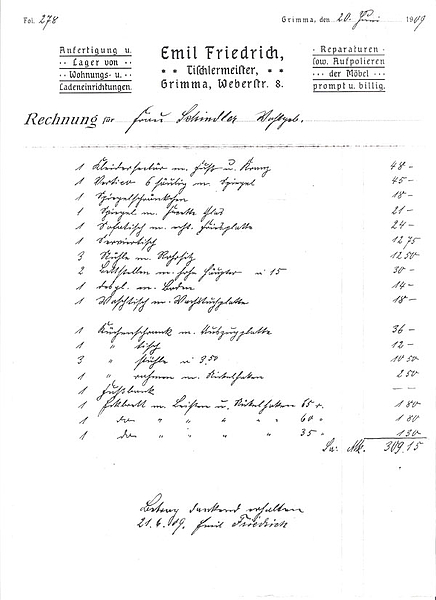 Fol. 278
Grimma, den 20. Juni 1909
Anfertigung u.
Lager von
Wohnungs- u.
Ladeneinrichtungen.
Emil Friedrich,
Tischlermeister,
Grimma, Weberstr. 8.
Reparaturen
sow. Aufpolieren
der Möbel
prompt u. billig.
Rechnung für Frau Schindler Wohlgeb.
1 Kleidersecretär m. Fuß u. Kranz 48 –
1 Vertico 6 säulig m. Spiegel 45 –
1 Spiegelschränkchen 18 –
1 Spiegel m. Glas 21 –
1 Sofatisch m. 24 –
1 Serviertisch 12 75
3 Stühle m. Rohrsitz 12 50
2 Bettstellen m. hohe Häupter a 15 30 –
1 desgl. m. Boden 14 –
1 Waschtisch m. Wachstuchplatte 18 –
1 Küchenschrank m. Aufzugplatte 36 –
1 " tisch 12 –
3 " stühle a 3.50 10 50
1 " rahmen m. Nickelhaken 2 50
1 Fußbank – –
1 Eckbrett m. Leisten u. Nickelhaken 65 1 80
1 do " " " " 60 " 1 80
1 do " " " " 35 " 1 30
Sa: Mk. 309.15
Betrag dankend erhalten
21.6.09. Emil Friedrich